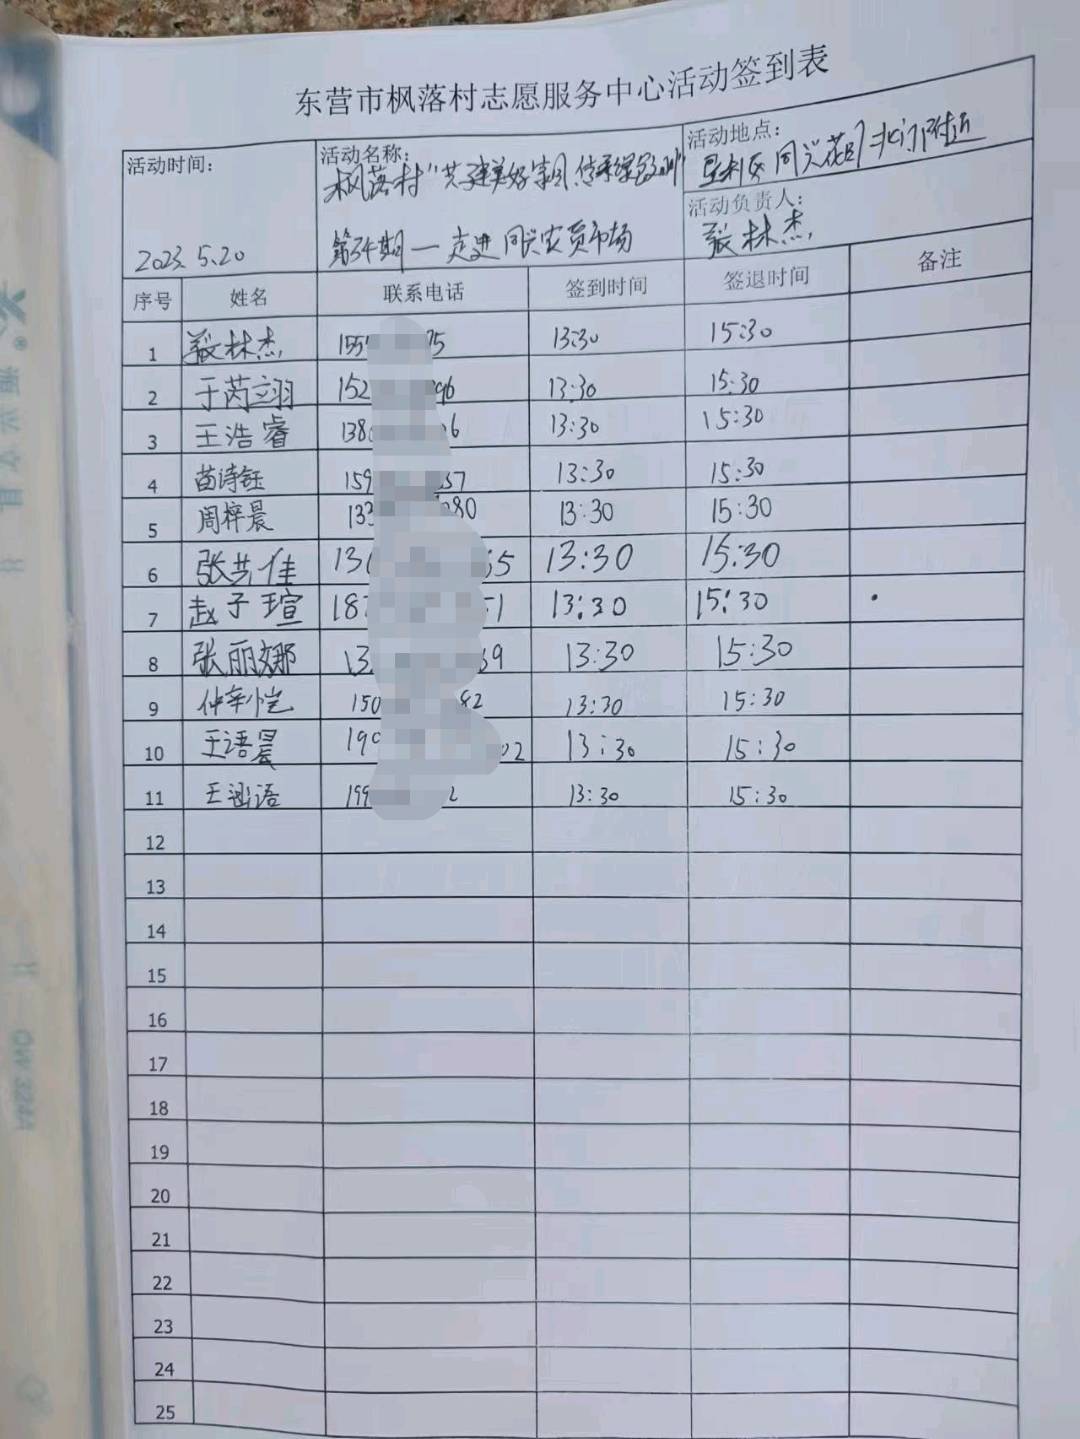 东营市枫落村志愿服务中心活动签到表
活动时间:
2023.5.20
活动名称:
枫落村"共建美好家园
第34期—走进同兴农贸市场
活动地点:
垦利区同兴花园北门附近
活动负责人:
张林杰
序号 姓名 联系电话 签到时间 签退时间 备注
1 张林杰 155 75 13:30 15:30
2 于芮翊 152 96 13:30 15:30
3 王浩睿 138 6 13:30 15:30
4 苗诗钰 159 57 13:30 15:30
5 周梓晨 133 80 13:30 15:30
6 张芸佳 13 65 13:30 15:30
7 赵子瑄 187 1 13:30 15:30
8 张丽娜 13 39 13:30 15:30
9 仲 恺 150 82 13:30 15:30
10 王语晨 199 02 13:30 15:30
11 王涵语 199 2 13:30 15:30
12
13
14
15
16
17
18
19
20
21
22
23
24
25